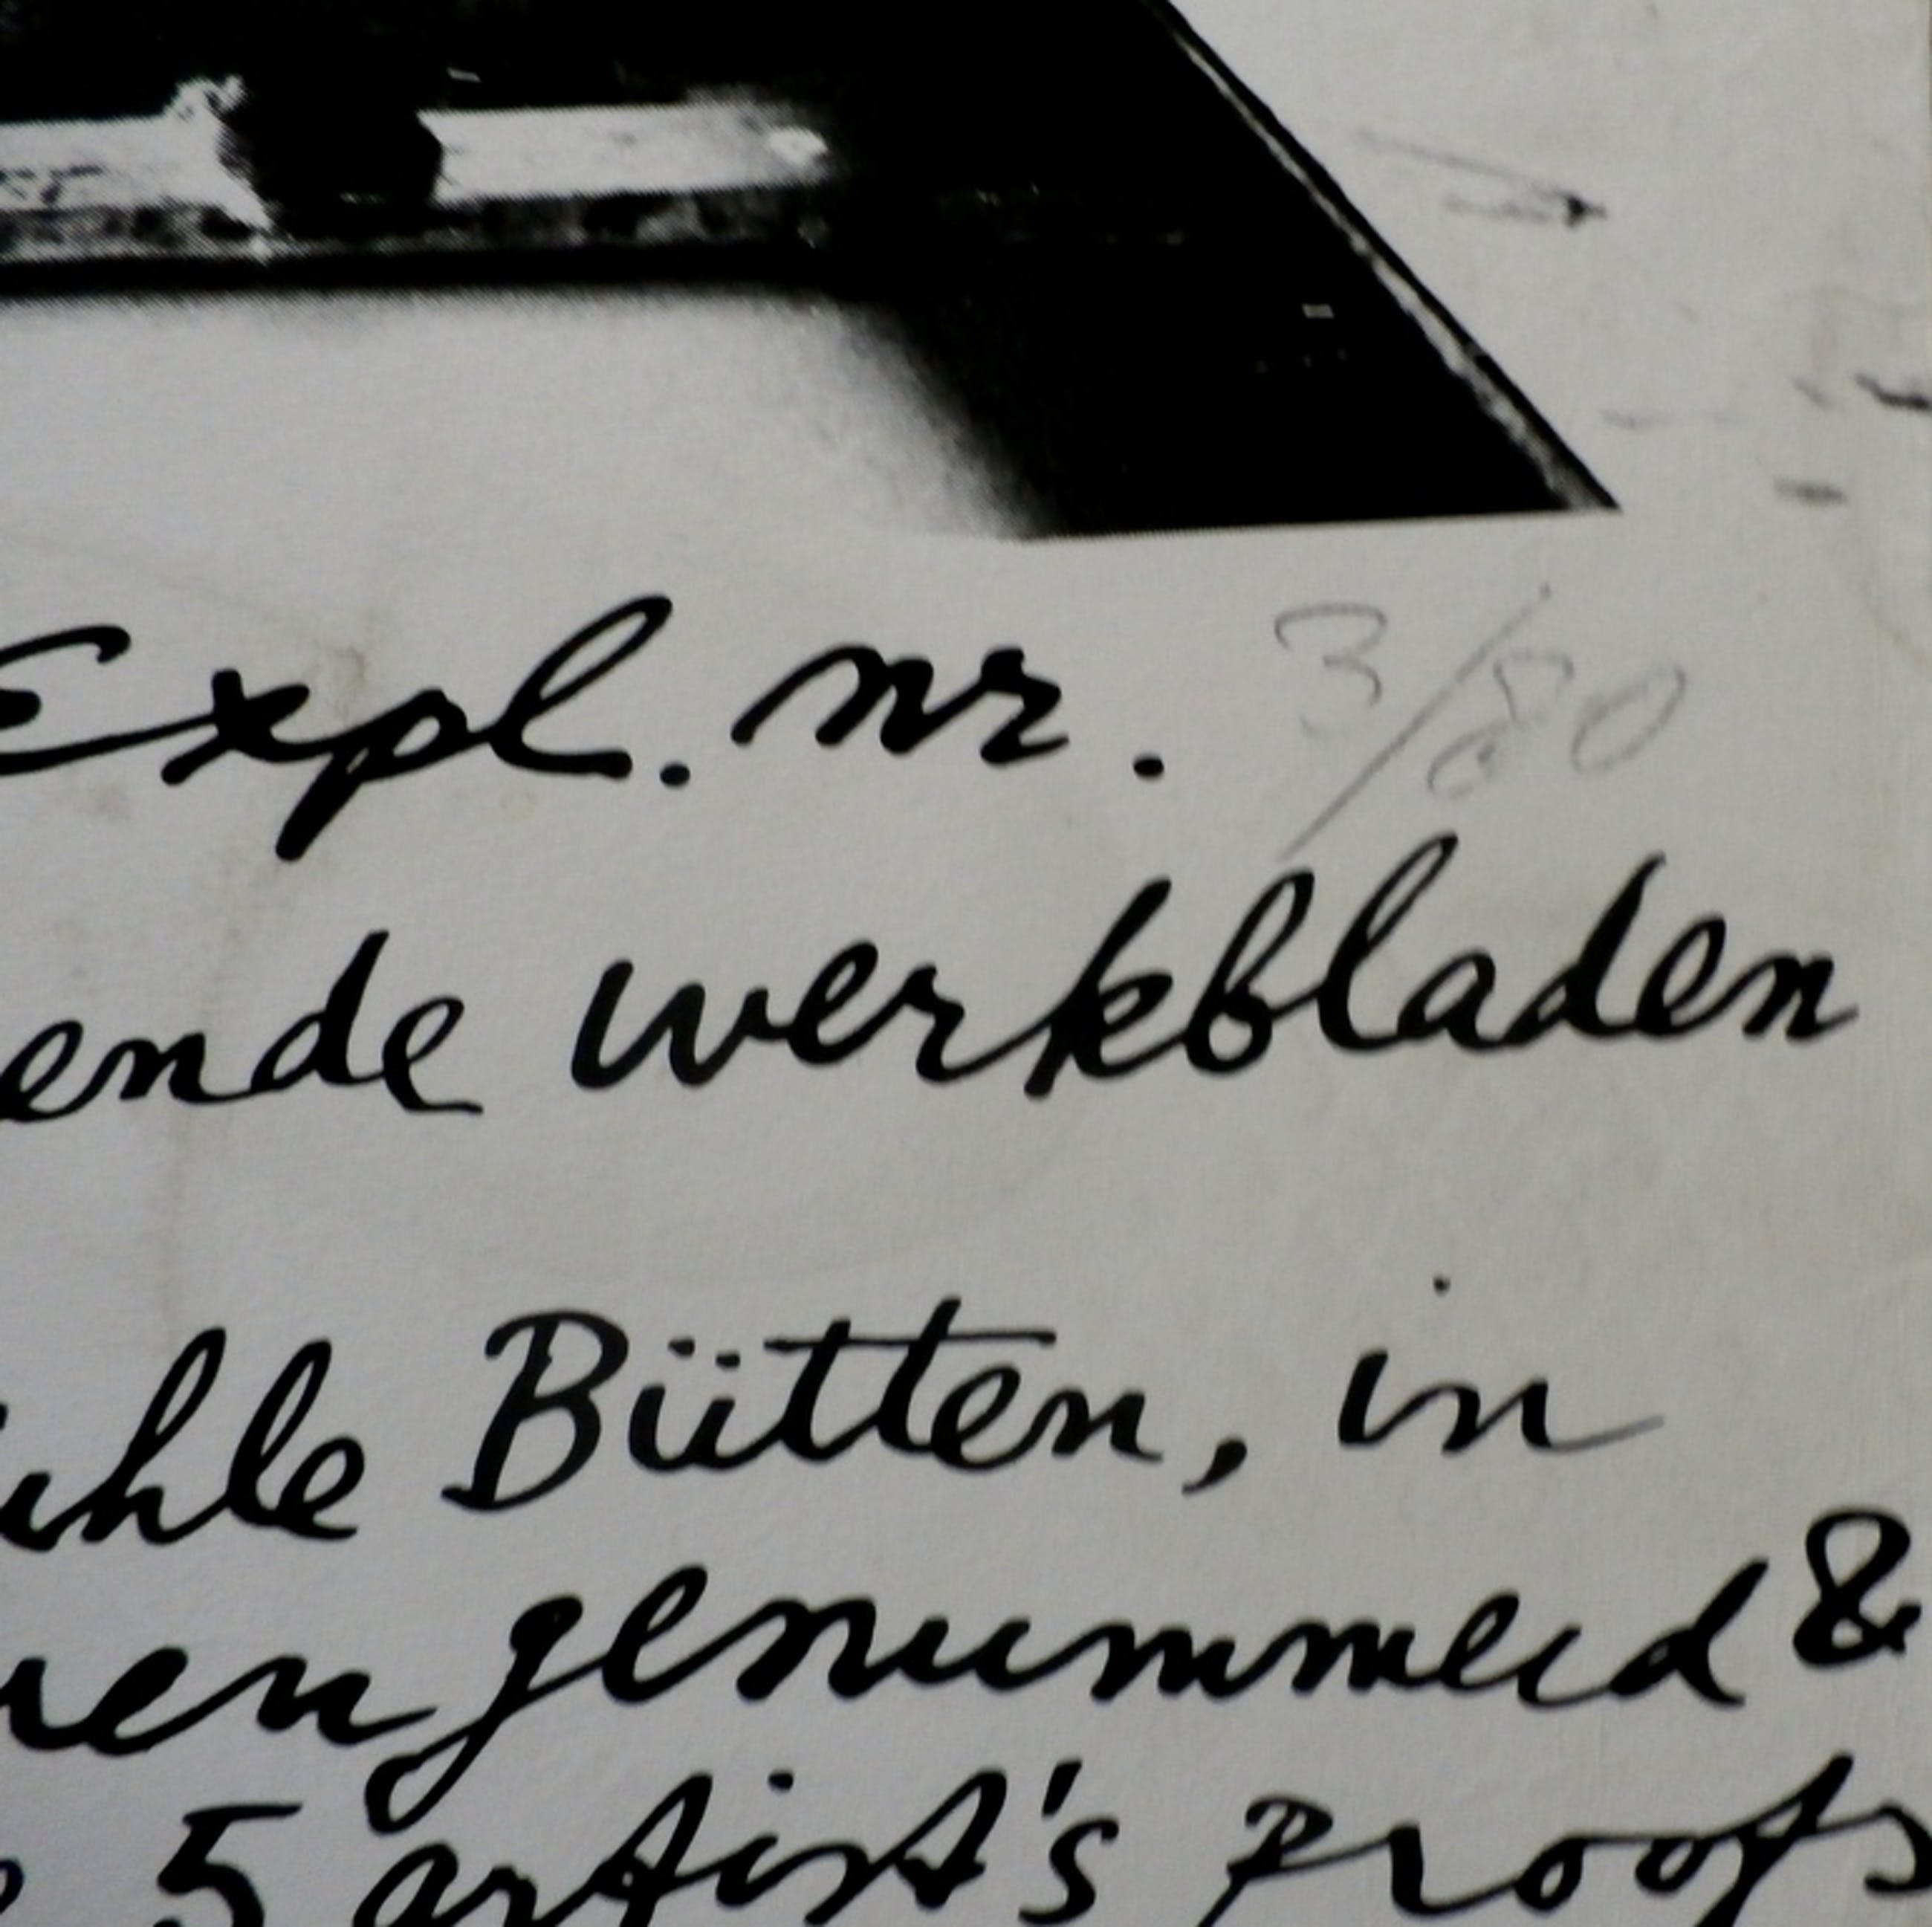 Expl. nr. 3/80
ende werkbladen
ühle Bütten, in
en genummerd &
5 artist's proofs